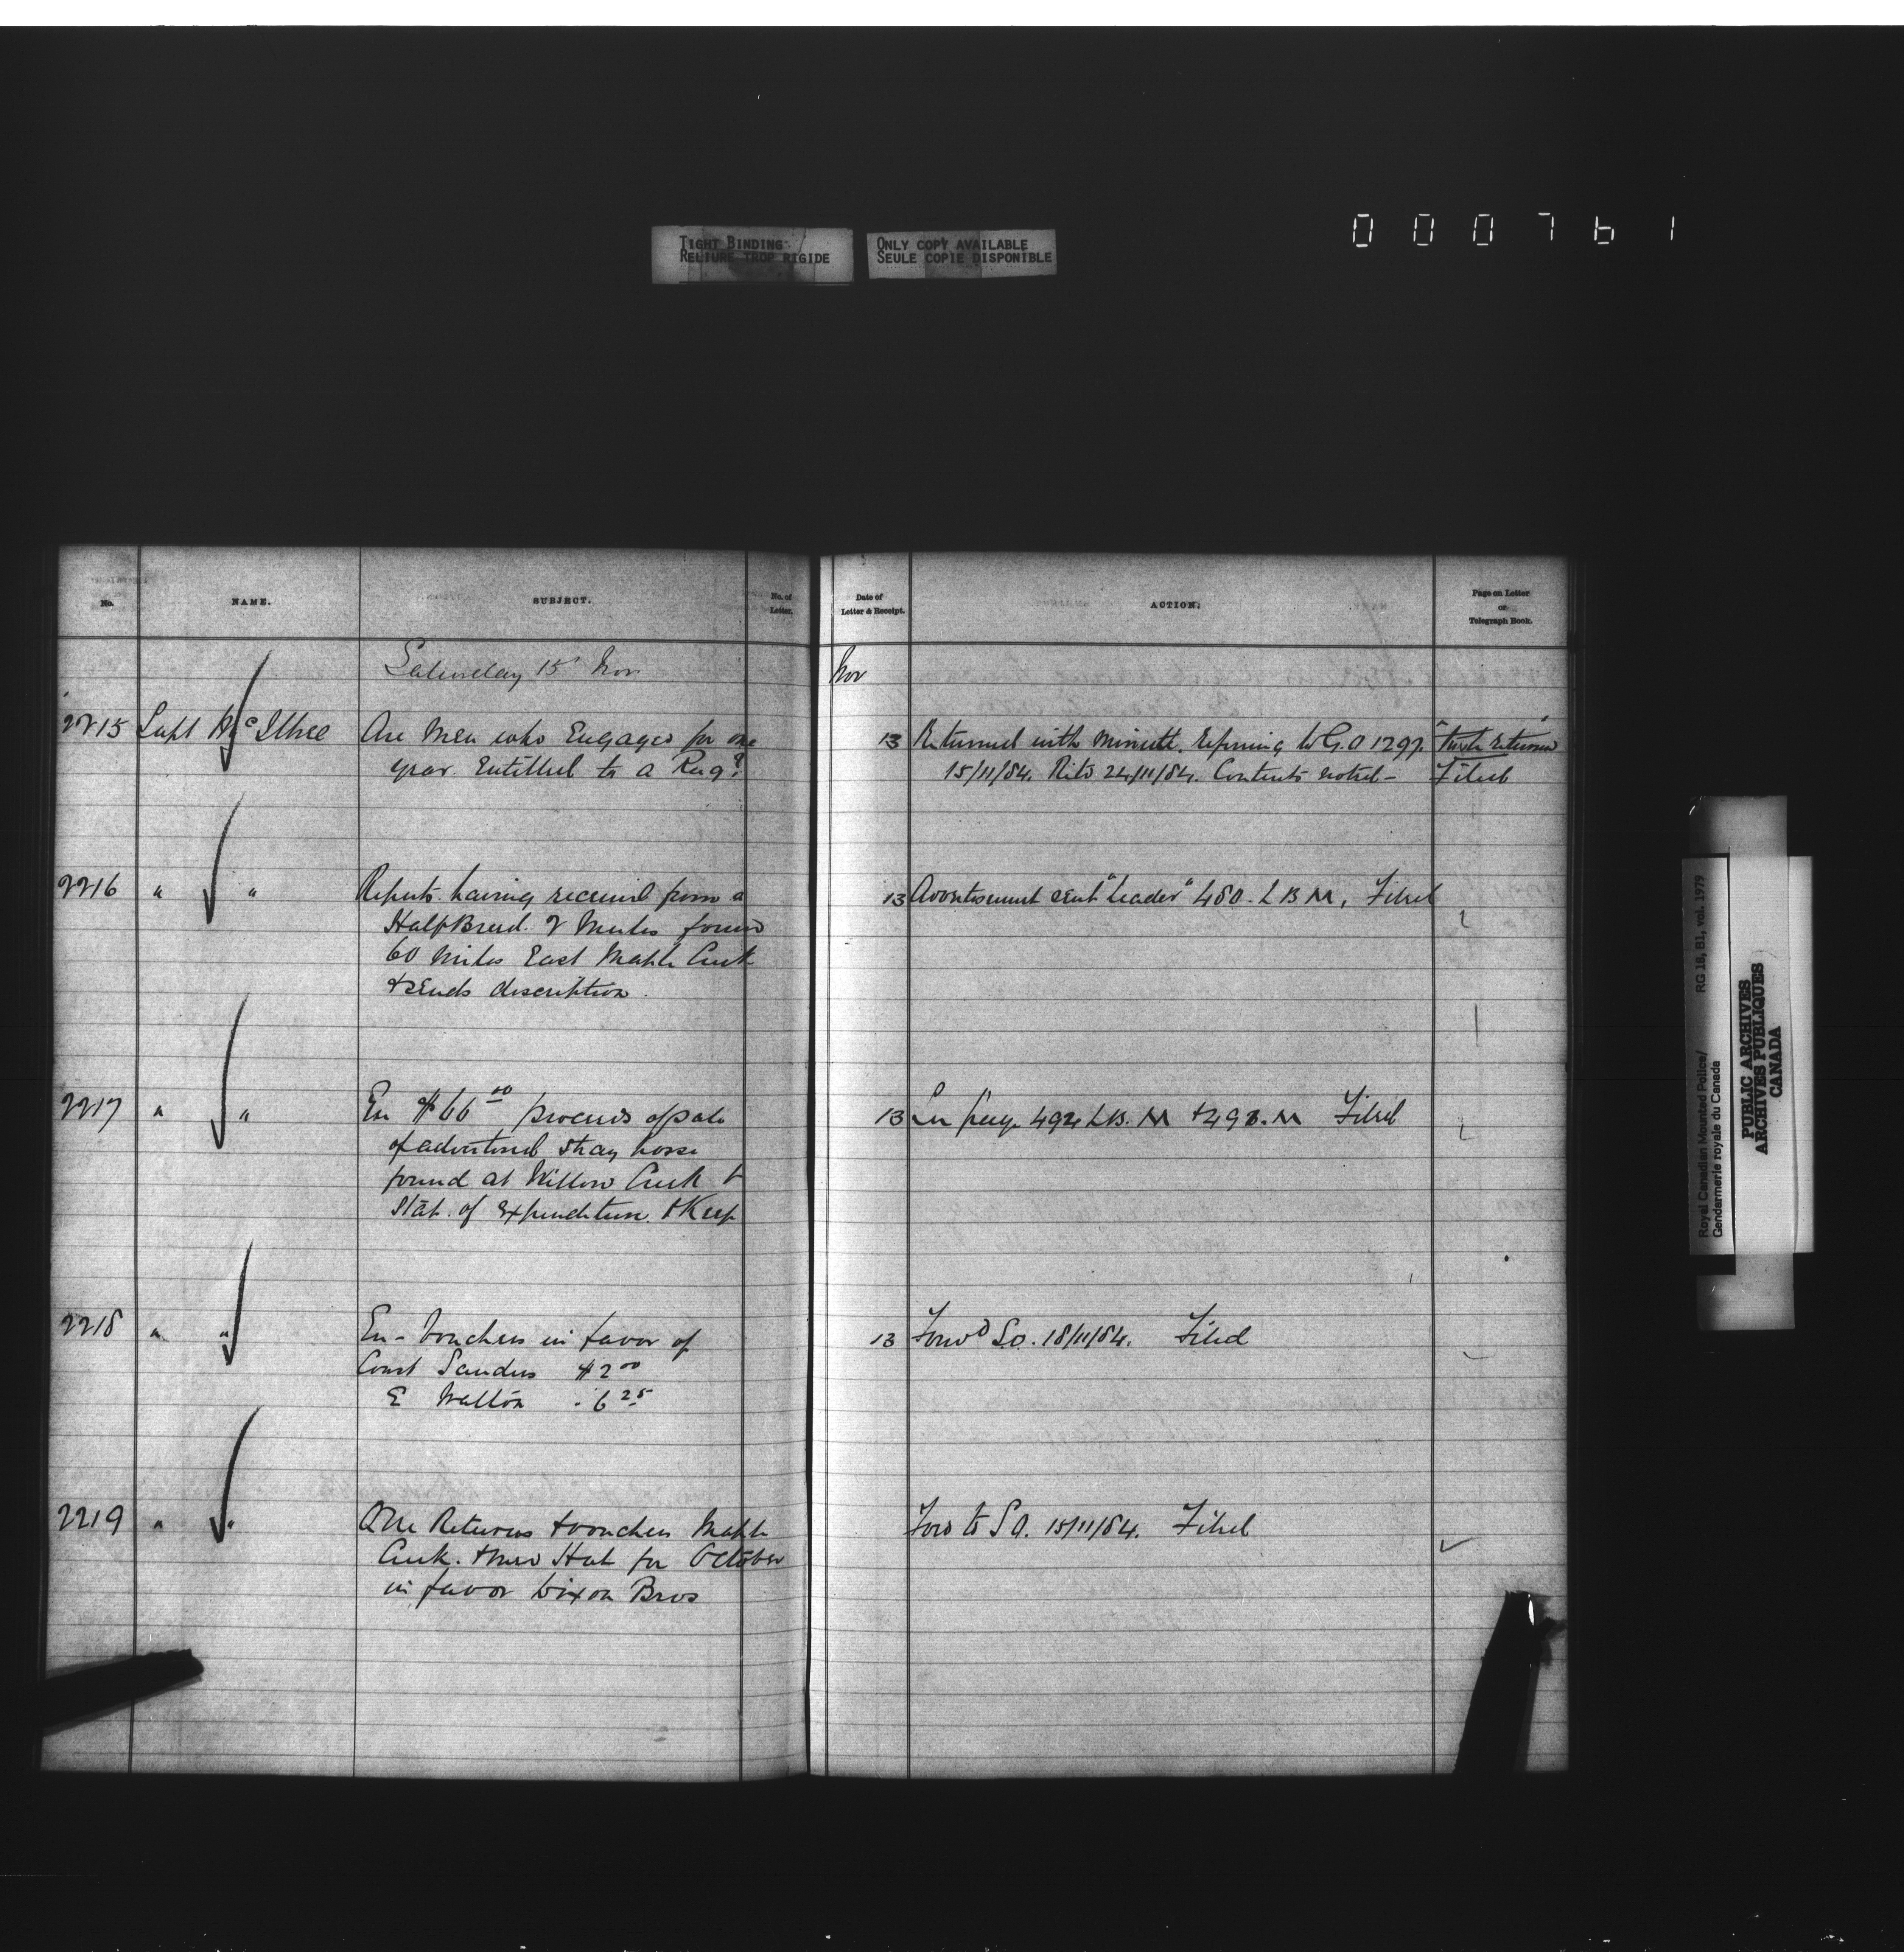 TIGHT BINDING
RELIURE TROP RIGIDE
ONLY COPY AVAILABLE
SEULE COPIE DISPONIBLE
000761
No.
NAME.
SUBJECT.
No. of
Letter.
Date of
Letter & Receipt.
ACTION.
Page on Letter
or
Telegraph Book.
Saturday 15 Nov
Nov
2215 Supt McIllree Are Men who Engaged for one
year. Entitled to a Rug?
13 Returned with minute. refering to G.O 1297.
15/11/84. Rets 24/11/84. Contents noted -
returned
Filed
2216 " " Reports having received from a
Half Breed. 2 Mules found
60 miles East Maple Creek
& sends description.
13 Advertisement sent "Leader" 480. L B M, Filed
2217 " " En $66 00 proceeds of sale
of advertised stray horse
found at Willow Creek &
Stat. of Expenditure. & Keep
13 See page 492 LB. M & 493. M Filed
2218 " " En - Vouchers in favor of
Const Sanders $2 00
E Walton " 6 25
13 Forwd S.O. 18/11/84. Filed
2219 " " Returns & vouchers Maple
Creek. & Med Hat for October
in favor Dixon Bros
Ford to S O. 15/11/84. Filed
Royal Canadian Mounted Police/ RG 18, B1, vol. 1979
Gendarmerie royale du Canada
PUBLIC ARCHIVES
ARCHIVES PUBLIQUES
CANADA